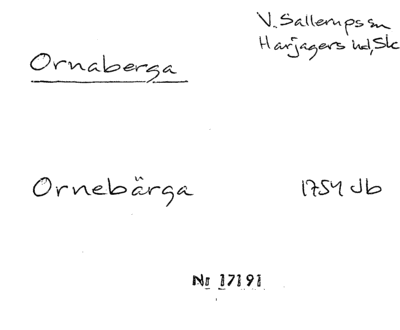 V. Sallerups sn
Harjagers hd, Sk
Ornaberga
Ornebärga 1754 Jb
Nr 17191